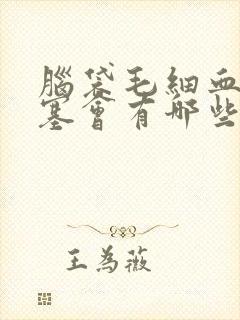 腦袋毛細血
塞會有哪些
王為薇